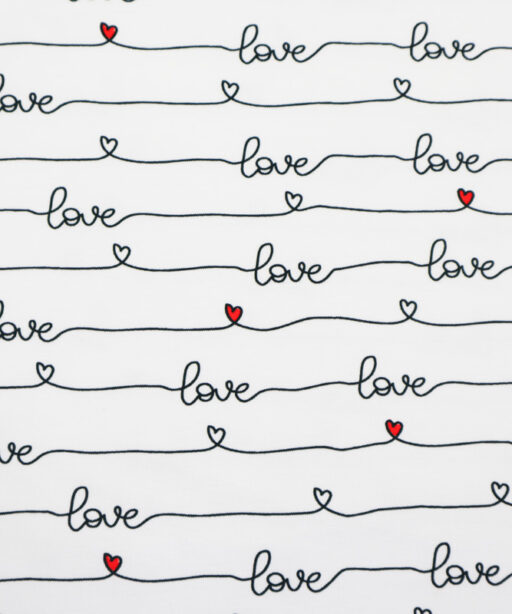 love love
love
love love
love
love love
love
love love
love
love
love love